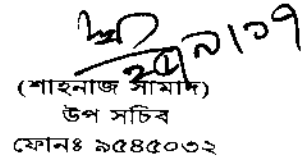 ২৫/৯/০৭
(শাহনাজ সামাদ)
উপ সচিব
ফোনঃ ৯৫৪৫০৩২